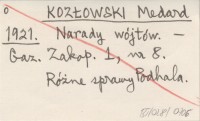 o KOZŁOWSKI Medard
1921. Narady wójtów. –
Gaz. Zakop. 1, na 8.
Różne sprawy Podhala.